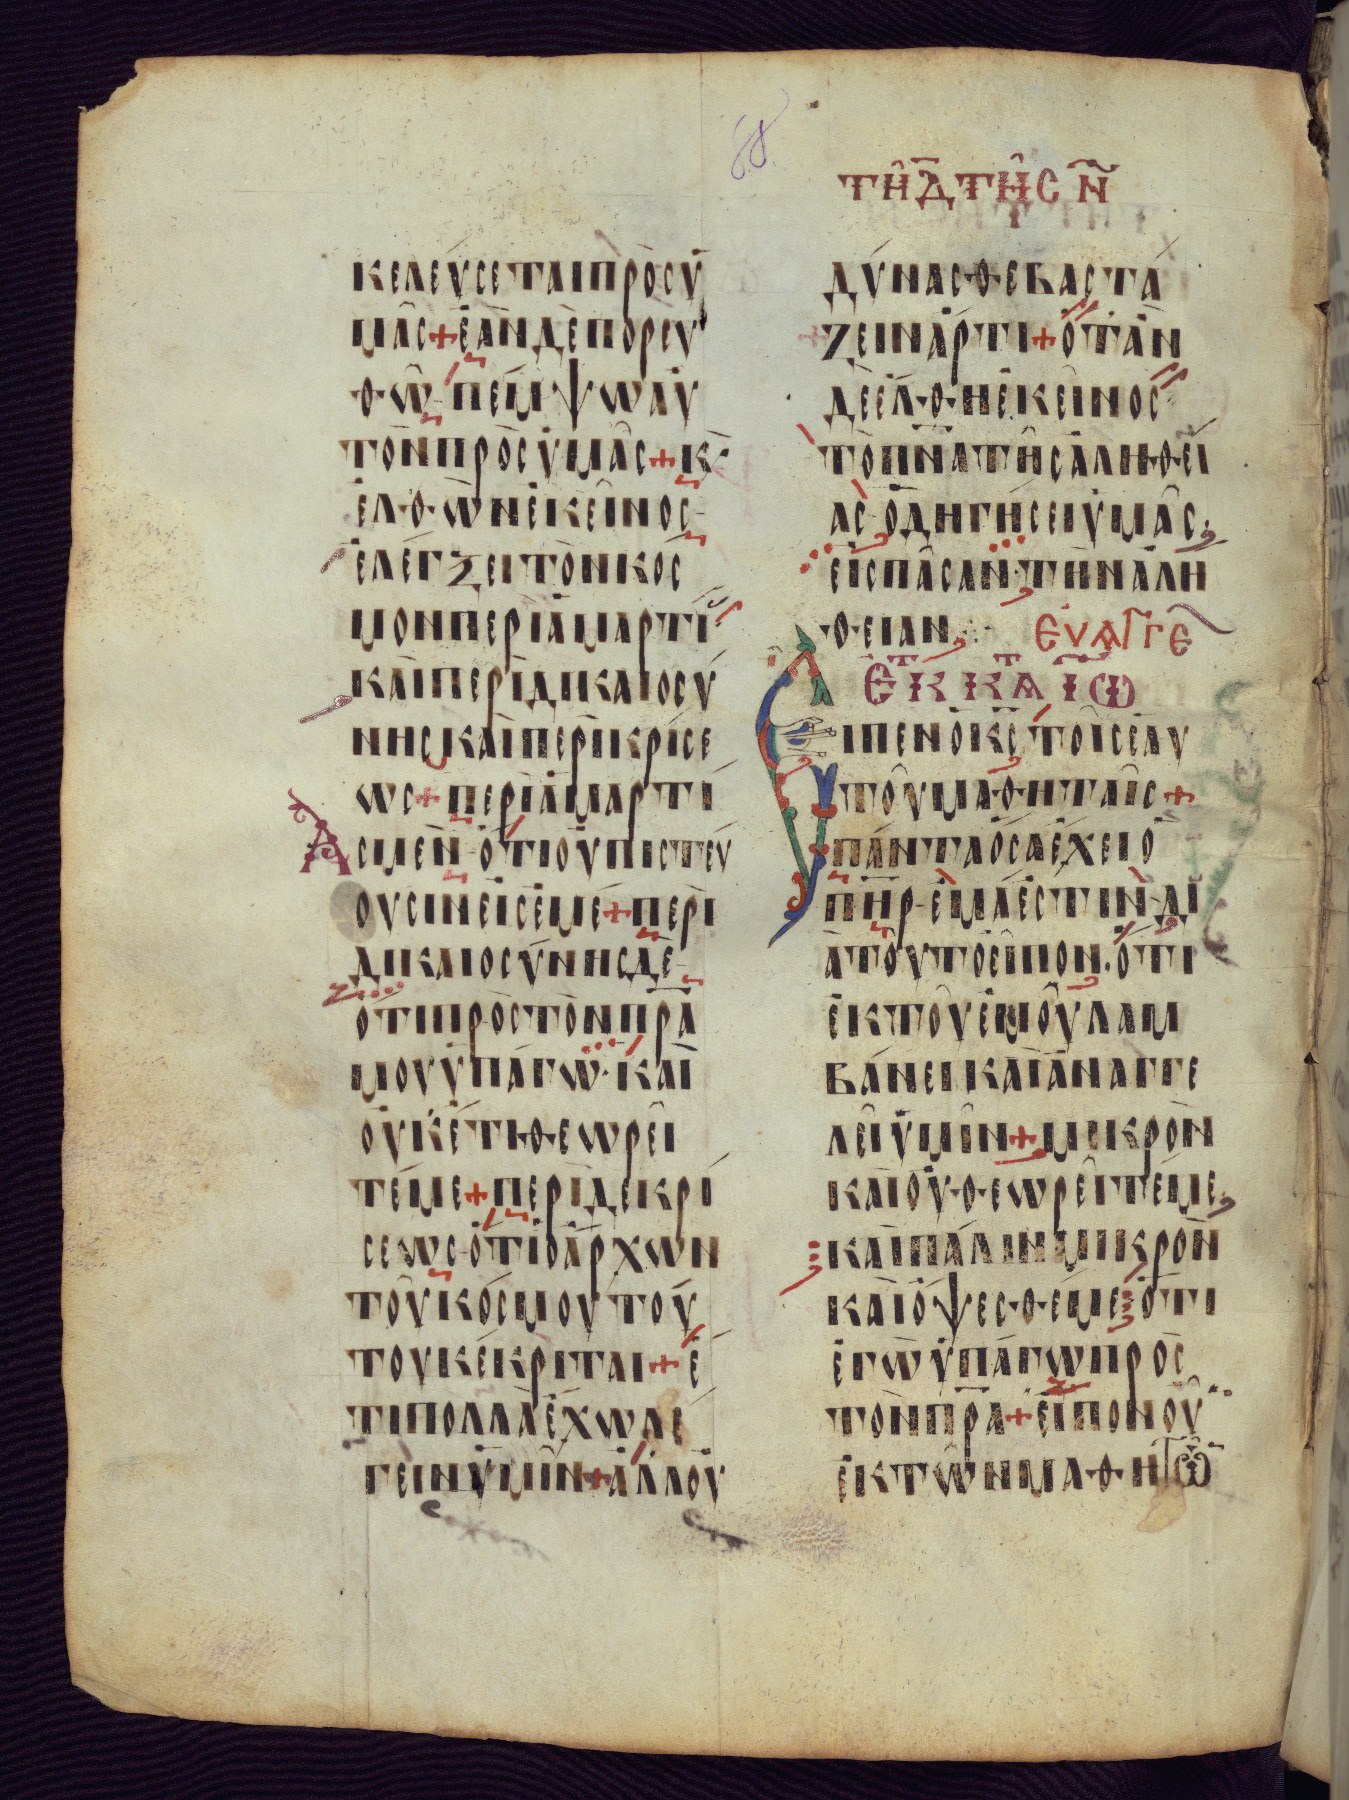 68
ΤΗ Δ ΤΗС Ν
ΚΕΛΕΥСΕΤΑΙΠΡΟСΥ
ΜΑС+ΕΑΝΔΕΠΟΡΕΥ
ΘΩ ΠΕΜΨΩΑΥ
ΤΟΝΠΡΟСΥΜΑС+Κ
ΕΛΘΩΝΕΚΕΙΝΟС
ΕΛΕΓΞΕΙΤΟΝΚΟС
ΜΟΝΠΕΡΙΑΜΑΡΤΙ
ΚΑΙΠΕΡΙΔΙΚΑΙΟСΥ
ΝΗС ΚΑΙΠΕΡΙΚΡΙСΕ
ΩС+ΠΕΡΙΑΜΑΡΤΙ
ΑСΜΕΝ ΟΤΙΟΥΠΙСΤΕΥ
ΟΥСΙΝΕΙСΕΜΕ+ΠΕΡΙ
ΔΙΚΑΙΟСΥΝΗСΔΕ
ΟΤΙΠΡΟСΤΟΝΠΡΑ
ΜΟΥΥΠΑΓΩ·ΚΑΙ
ΟΥΚΕΤΙΘΕΩΡΕΙ
ΤΕΜΕ+ΠΕΡΙΔΕΚΡΙ
СΕΩС ΟΤΙΟΑΡΧΩΝ
ΤΟΥΚΟСΜΟΥΤΟΥ
ΤΟΥΚΕΚΡΙΤΑΙ+Ε
ΤΙΠΟΛΛΑΕΧΩΛΕ
ΓΕΙΝΥΜΙΝ+ΑΛΛΟΥ
ΔΥΝΑСΘΕΒΑСΤΑ
ΖΕΙΝΑΡΤΙ+ΟΤΑΝ
ΔΕΕΛΘΗΕΚΕΙΝΟС
ΤΟΠΝΑΤΗСΑΛΗΘΕΙ
ΑС ΟΔΗΓΗСΕΙΥΜΑС
ΕΙСΠΑСΑΝ·ΤΗΝΑΛΗ
ΘΕΙΑΝ ΕΥΑΓΓΕ
ΕΚ Κ ΚΑ ΙΩ
ΕΙΠΕΝΟΚС ΤΟΙСΕΑΥ
ΤΟΥΜΑΘΗΤΑΙС+
ΠΑΝΤΑΟСΑΕΧΕΙΟ
ΠΗΡ ΕΜΑΕСΤΙΝ ΔΙ
ΑΤΟΥΤΟΕΙΠΟΝ·ΟΤΙ
ΕΚΤΟΥΕΜΟΥΛΑΜ
ΒΑΝΕΙΚΑΙΑΝΑΓΓΕ
ΛΕΙΥΜΙΝ+ΜΙΚΡΟΝ
ΚΑΙΟΥΘΕΩΡΕΙΤΕΜΕ
ΚΑΙΠΑΛΙΝΜΙΚΡΟΝ
ΚΑΙΟΨΕСΘΕΜΕ ΟΤΙ
ΕΓΩΥΠΑΓΩΠΡΟС
ΤΟΝΠΡΑ+ΕΙΠΟΝΟΥ
ΕΚΤΩΝΜΑΘΗΤΩ